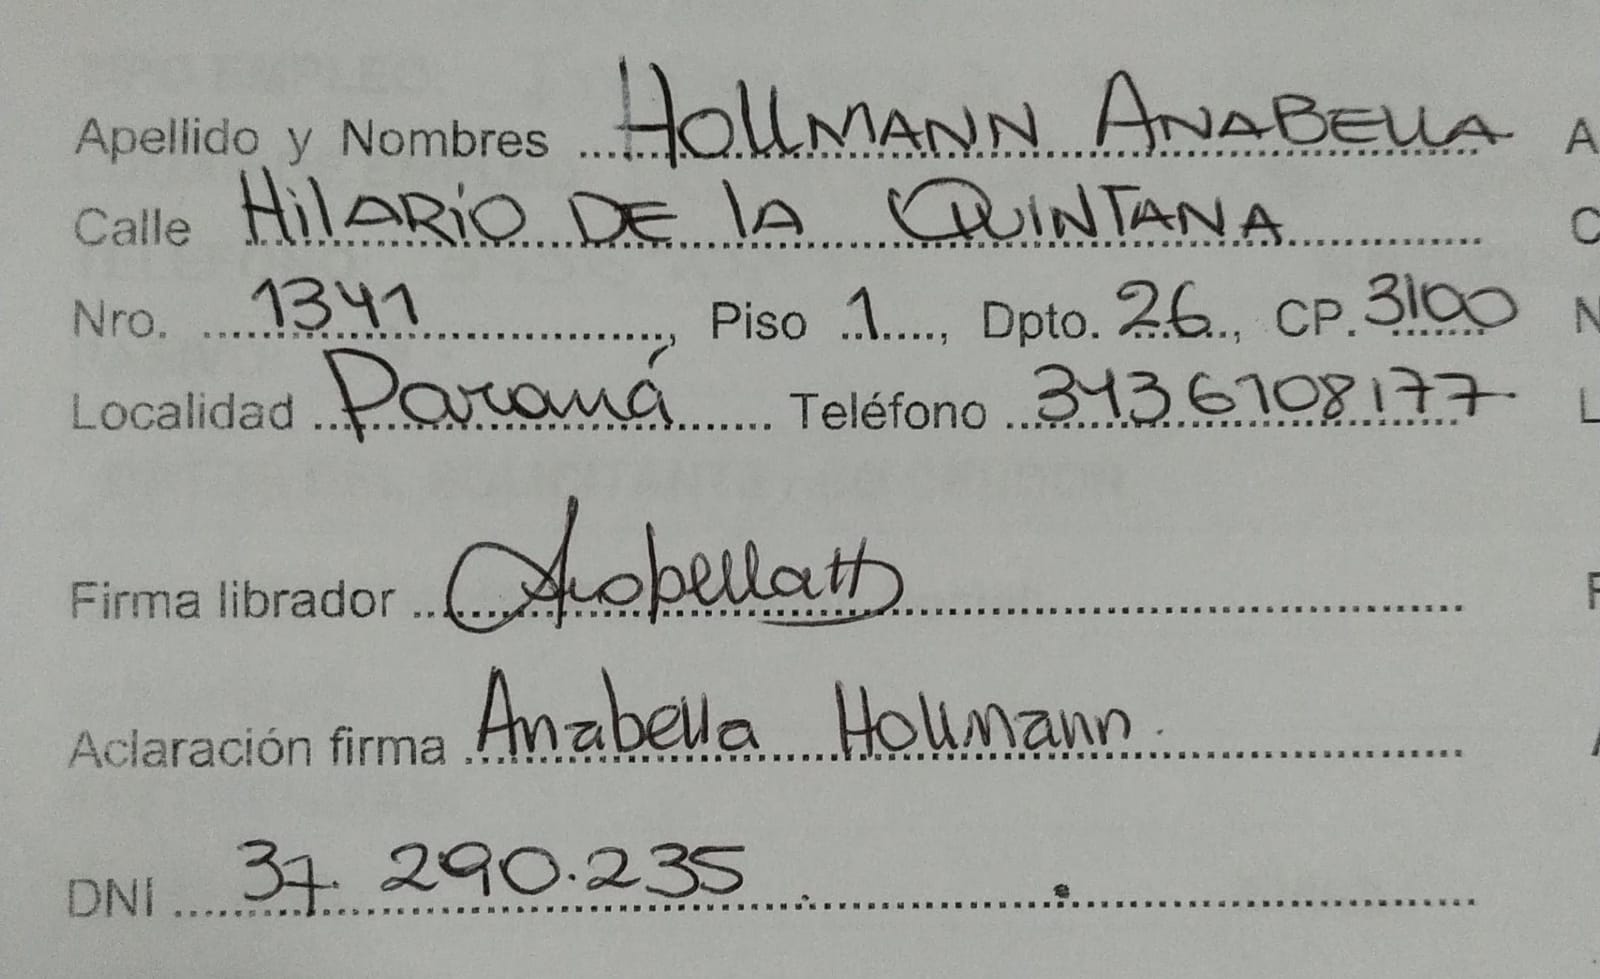 Apellido y Nombres HOLLMANN ANABELLA
Calle HilARiO DE lA QUINTANA
Nro. 1341, Piso 1, Dpto. 26, CP. 3100
Localidad Paraná Teléfono 3436108177
Firma librador
Aclaración firma Anabella Hollmann.
DNI 37.290.235